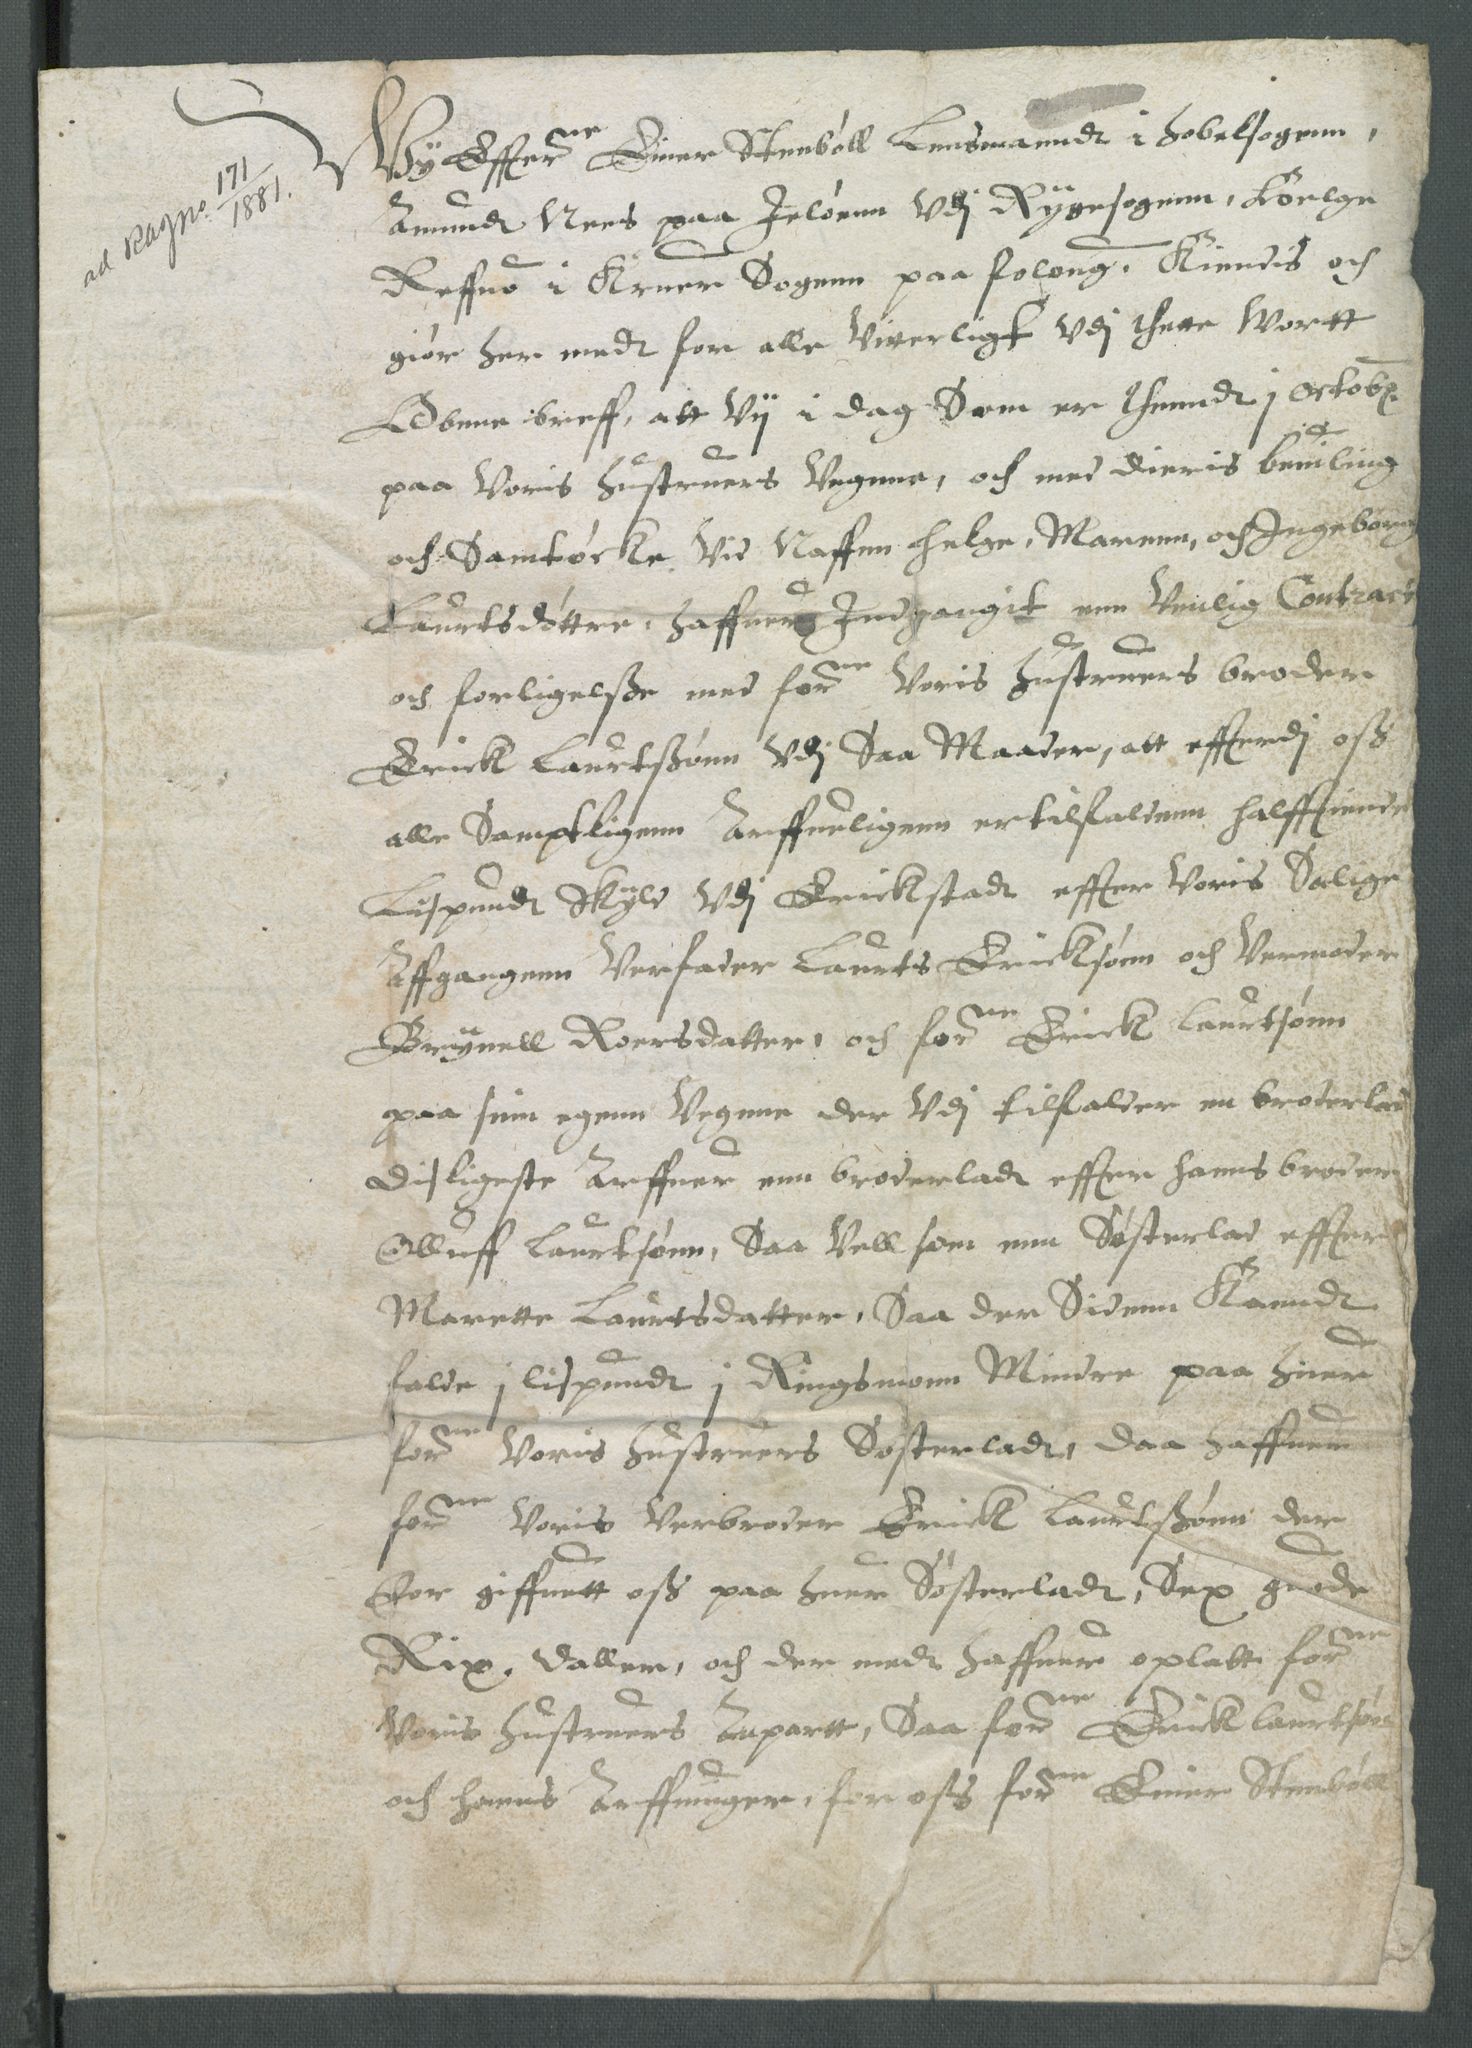 ad Ragno. 171/1881.
Wÿ Effterne Einer Stenböll Lensmanndt i hobelsogenn,
Amundt Nees paa Jelöenn Vdj Rÿgesogenn, Töelge
Reffnö i Krner Sogenn paa folong, Kiendis och
giör her medt for alle Vitterligt Vdj thette Wortt
Obene breff, att Vij i dag Som er thenndt j octobr.
paa Voris hustruers Vegnne, och med dieris beuiling
och Samtöcke Vid Naffnn helge, Marenn, och Ingeborg
Laurtsdöttre, haffuer Indgangit enn Venlig Contract
och forligelsze med forne Voris hustruers broder
Erick Laurtszönn Vdj Saa Maader, att efftterdj osz
alle Samptligenn Arffueligenn er tilfaldenn halfftiende
Lispundt skyld Vdj Erickstadt effter Voris Salige
Affgangenn Verfader Laurts Ericksönn och Vermoder
Brÿnell Roersdatter, och forne Erick Laurtsönn
paa sinn egenn Vegnne der Vdj tilfalder en broderlod
disligeste Arffuer enn broderladt effter hanns broder
Olluff Laurtsönn, Saa Vell som enn Sösterlad effter
Marette Laurtsdatter, Saa der Sidenn Kanndt
falde j lispundt j Ringsmonn Mindre paa huer
forne Voris hustruers Sösterladt, daa haffuer
forne Voris Verbroder Erick Laurtszönn der
for giffuett osz paa huer Sösterladt, Sex guode
Rix. daller, och der medt haffuer oplatt forne
Voris hustruers Anpartt, Saa forne Erick Laurtsön
och hanns Arffuinger, for osz forne Einer Stenböll